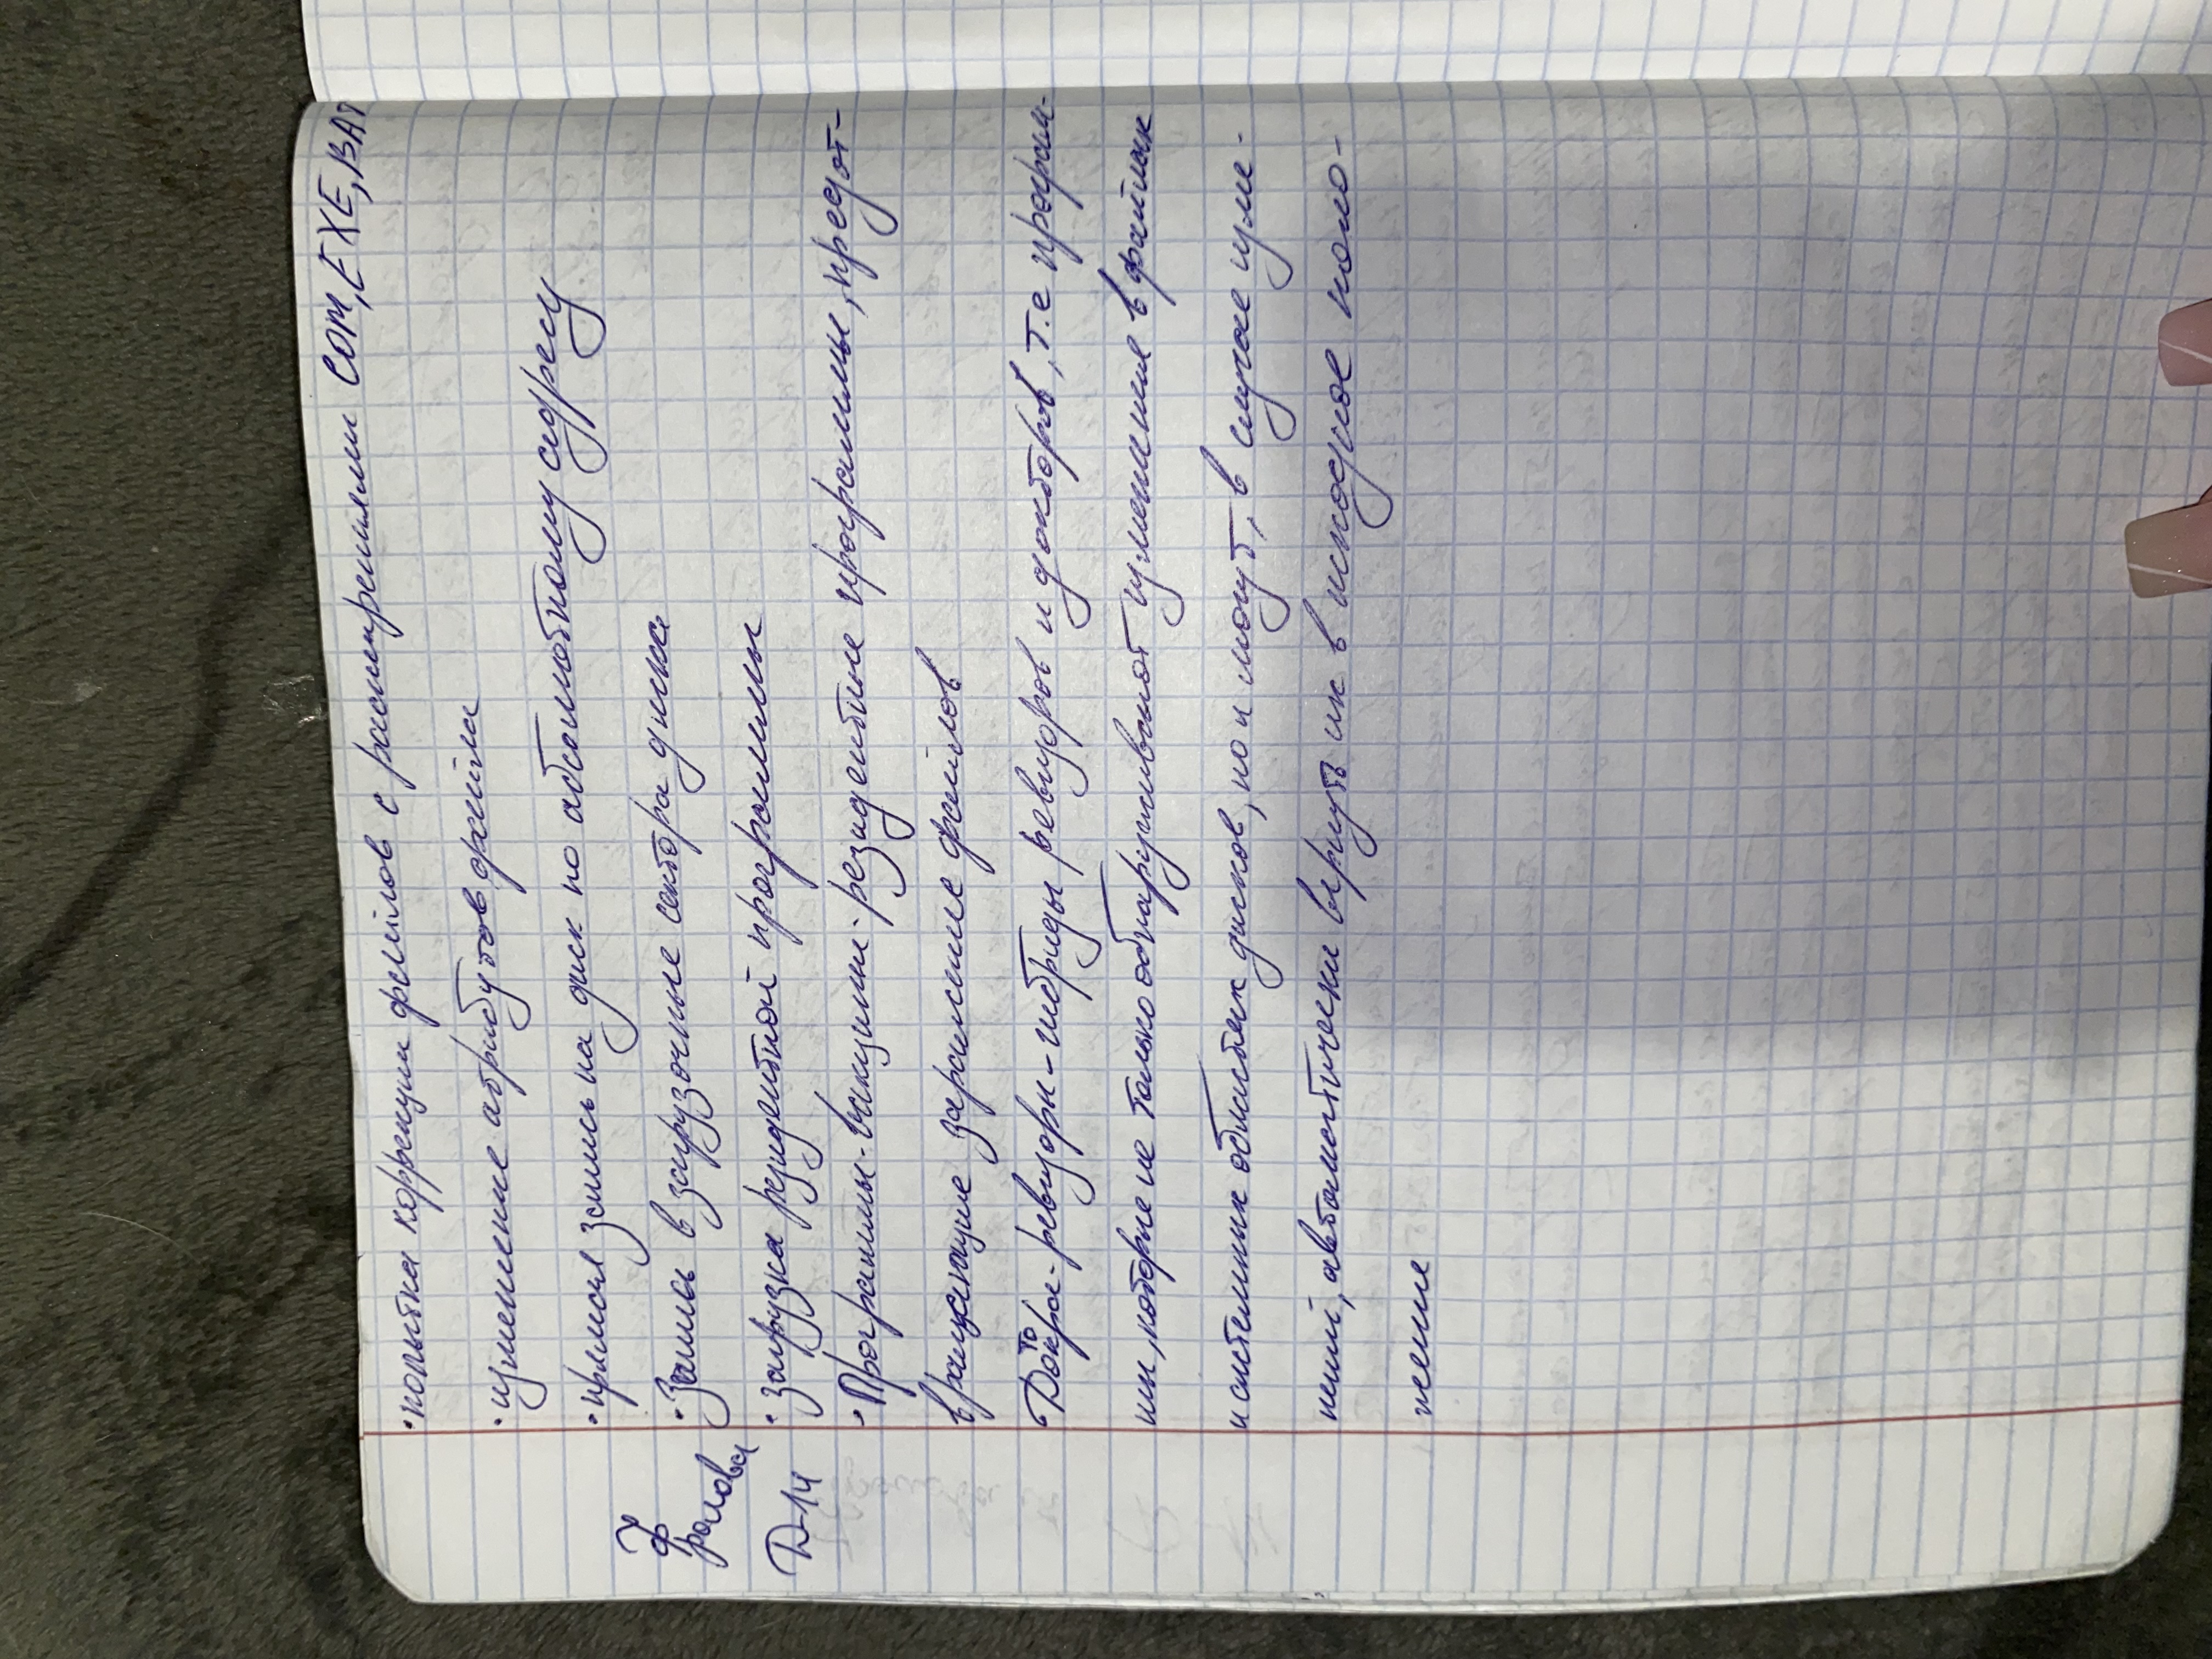 • попытка коррекции файлов с расширениями COM, EXE, BAT
• изменение атрибутов файла
• прямая запись на диск по абсолютному адресу
• Запись в загрузочные сектора диска
Фролова
• загрузка резидентной программы
Д-14
• Программы-вакцины-резидентные программы, предот-
вращающие заражение файлов
• Доктора-ревизоры-гибриды ревизоров и докторов, т.е програм-
мы, которые не только обнаруживают изменения в файлах
и системных областях дисков, но и могут, в случае изме-
нений, автоматически вернуть их в исходное поло-
жение